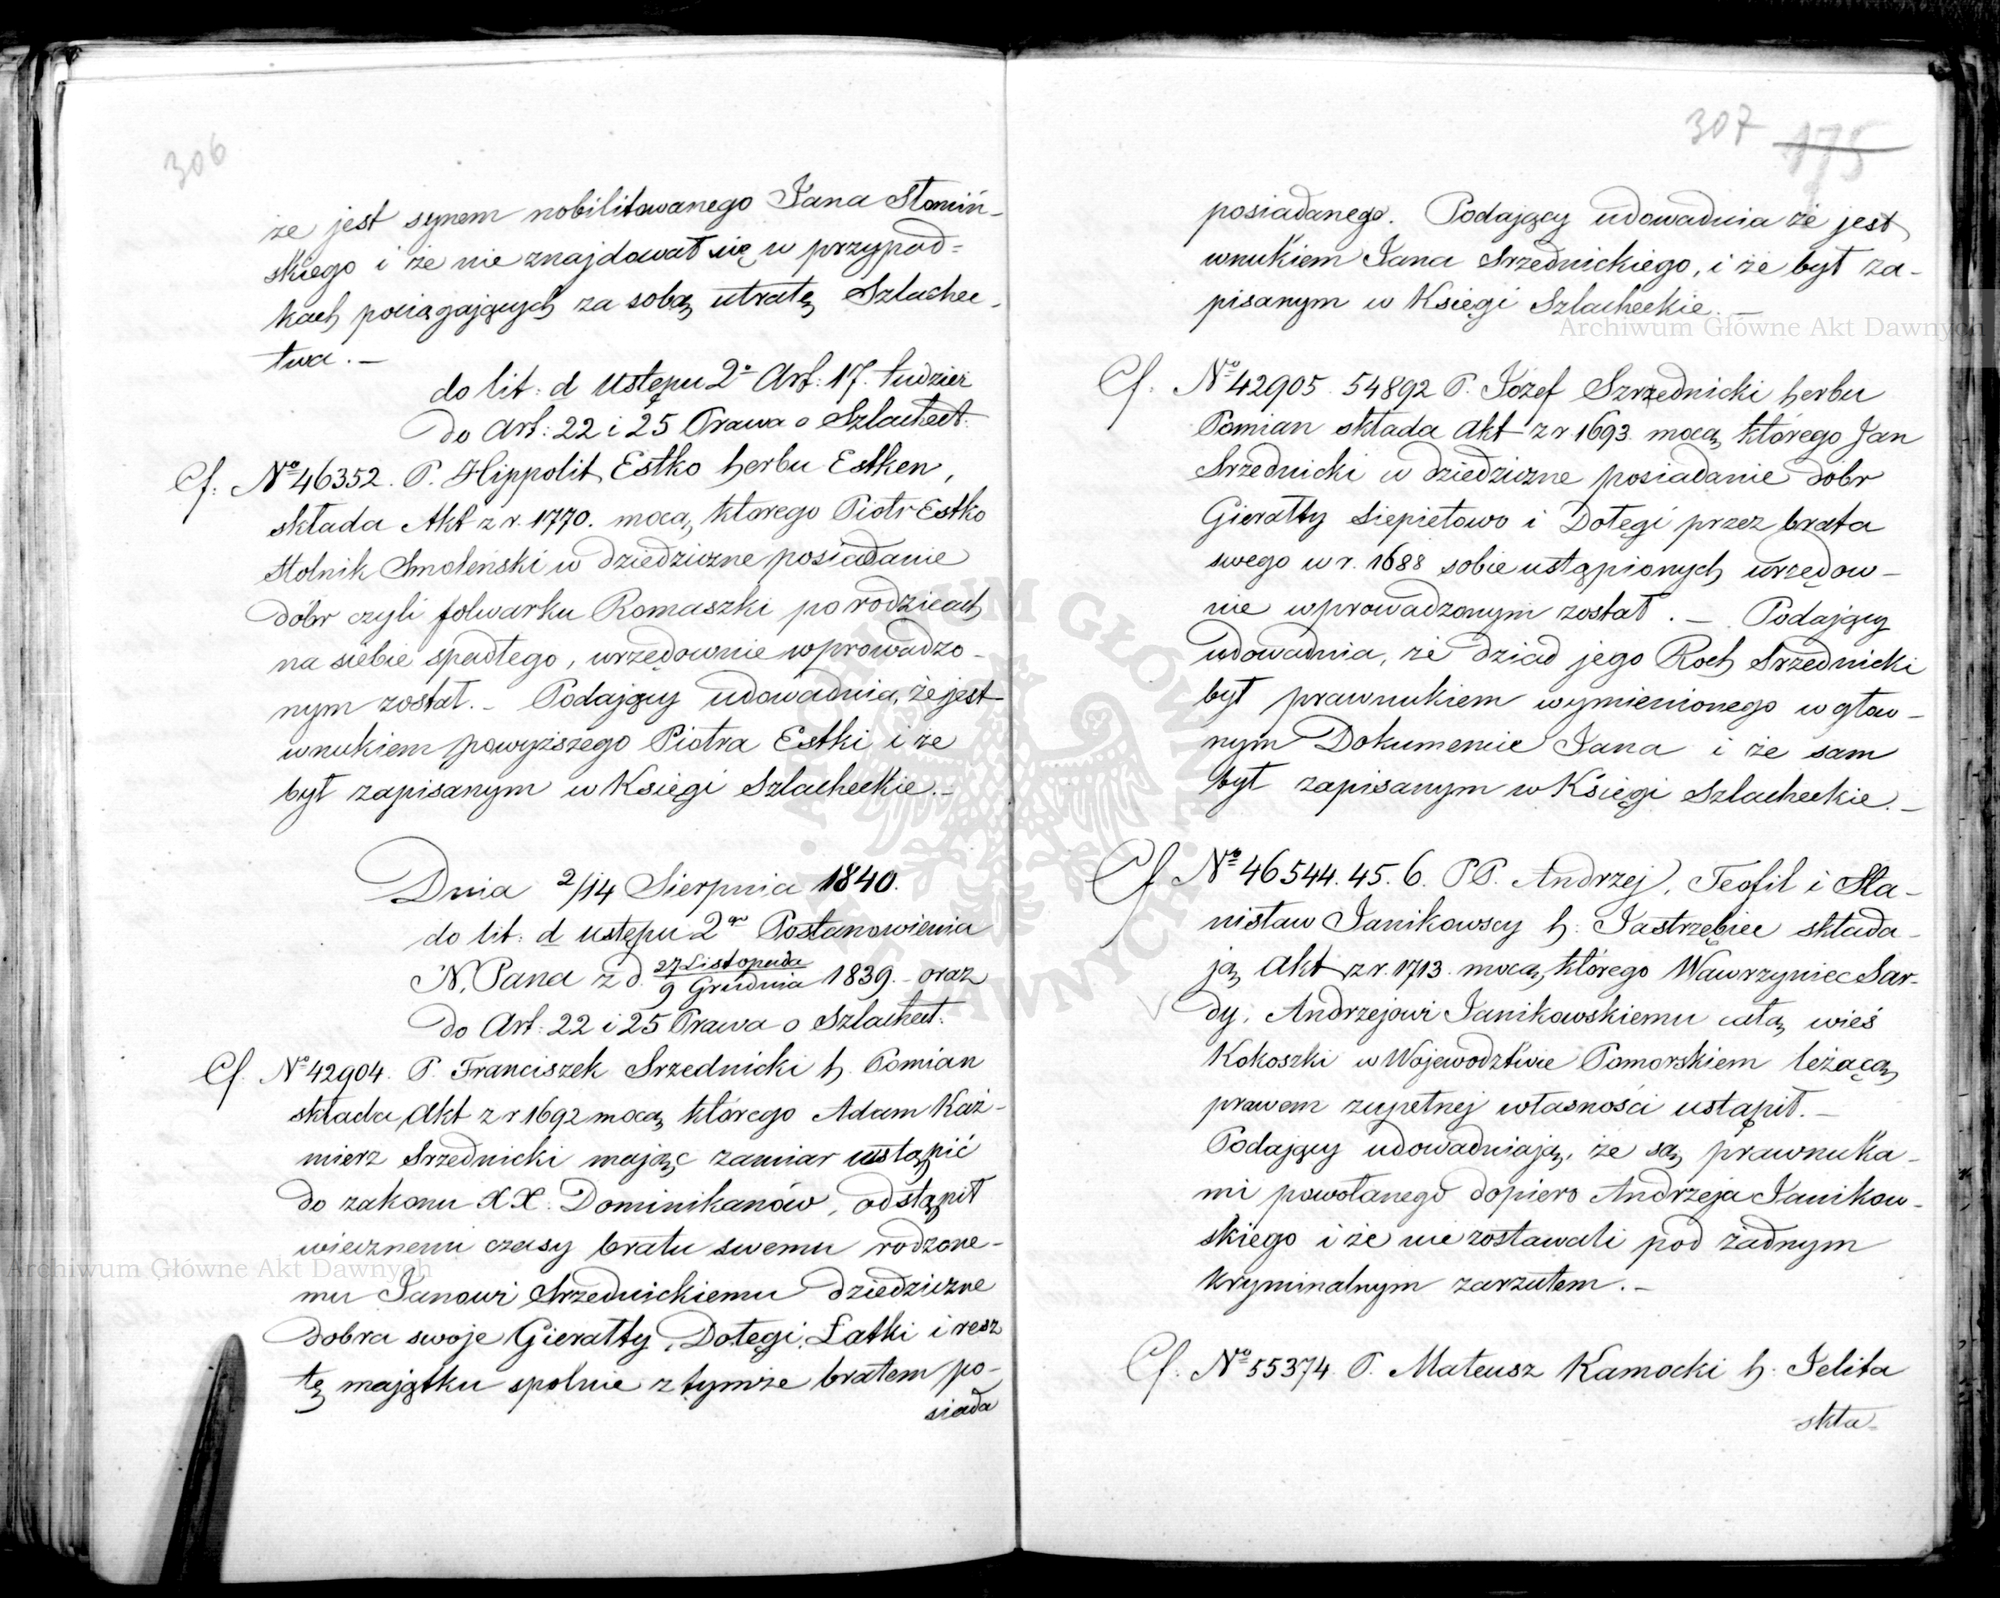 306
że jest synem nobilitowanego Jana Słomiń-
skiego i że nie znajdował się w przypad=
kach pociągających za sobą utratę Szlachec-
twa. –
do lit: d ustępu 2º Art: 17. tudzież
do Art: 22 i 25 Prawa o Szlachect:
Cf. Nº 46352. P. Hippolit Estko herbu Estken,
składa Akt z r. 1770. mocą którego Piotr Estko
Stolnik Smoleński w dziedziczne posiadanie
dóbr czyli folwarku Romaszki po rodzicach
na siebie spadłego, urzędownie wprowadzo-
nym został. – Podający udowadnia, że jest
wnukiem powyższego Piotra Estki i że
był zapisanym w Księgi Szlacheckie. –
Dnia 2/14 Sierpnia 1840.
do lit: d ustępu 2go Postanowienia
N. Pana z d. 27 Listopada / 9 Grudnia 1839. – oraz
do Art: 22 i 25 Prawa o Szlachect:
Cf. Nº 42904. P. Franciszek Srzednicki h. Pomian
składa Akt z r 1692 mocą którego Adam Kaź-
mierz Srzednicki mając zamiar wstąpić
do zakonu XX. Dominikanów, odstąpił
wiecznemi czasy bratu swemu rodzone-
mu Janowi Srzednickiemu dziedziczne
dobra swoje Gierałty, Dołęgi, Łatki i resz
tę majątku spólnie z tymże bratem po-
siada
307 175
posiadanego. Podający udowadnia że jest
wnukiem Jana Srzednickiego, i że był za-
pisanym w Księgi Szlacheckie. –
Cf. Nº 42905. 54892 P. Józef Szrzednicki herbu
Pomian składa Akt z r 1693. mocą którego Jan
Srzednicki w dziedziczne posiadanie dóbr
Gierałty Siepietowo i Dołęgi przez brata
swego w r. 1688 sobie ustąpionych urzędow-
nie wprowadzonym został. – Podający
udowadnia, że dziad jego Roch Srzednicki
był prawnukiem wymienionego w głów-
nym Dokumencie Jana i że sam
był zapisanym w Księgi Szlacheckie. –
Cf Nº 46544. 45. 6. PP. Andrzej, Teofil i Sta-
nisław Janikowscy h: Jastrzębiec składa-
ją Akt z r. 1713. mocą którego Wawrzyniec Sar-
dy, Andrzejowi Janikowskiemu całą wieś
Kokoszki w Województwie Pomorskiem leżącą
prawem zupełnej własności ustąpił. –
Podający udowadniają, że są prawnuka-
mi powołanego dopiero Andrzeja Janikow-
skiego i że nie zostawali pod żadnym
kryminalnym zarzutem. –
Cf. Nº 55374. P. Mateusz Kamocki h: Jelita
skła-
Archiwum Główne Akt Dawnych
Archiwum Główne Akt Dawnych
ARCHIWUM GŁÓWNE AKT DAWNYCH